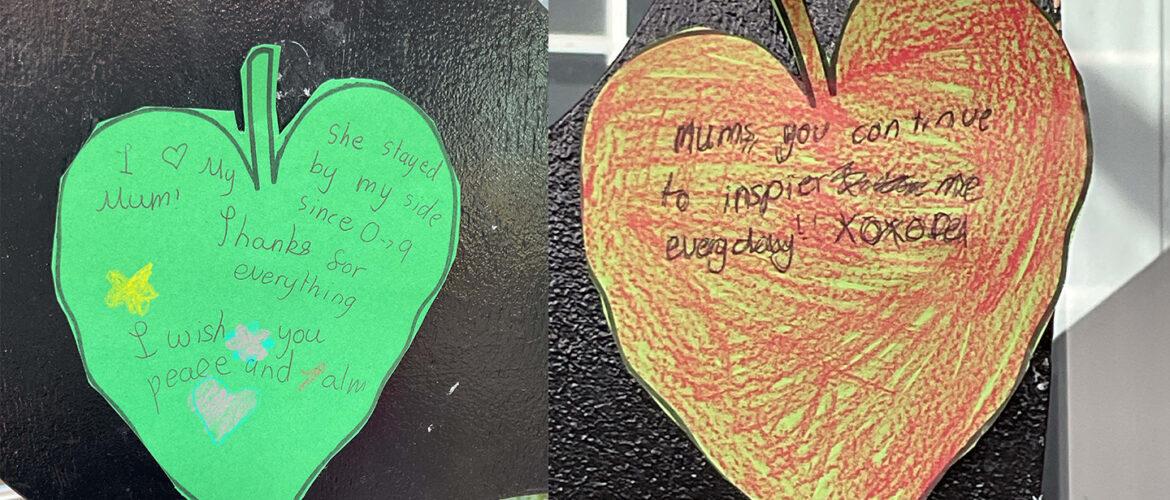 I ♡ My
Mum!
She stayed
by my side
since 0->9
Thanks for
everything
I wish you
peace and calm
Mums, you continue
to inspier me
everyday!! XOXO